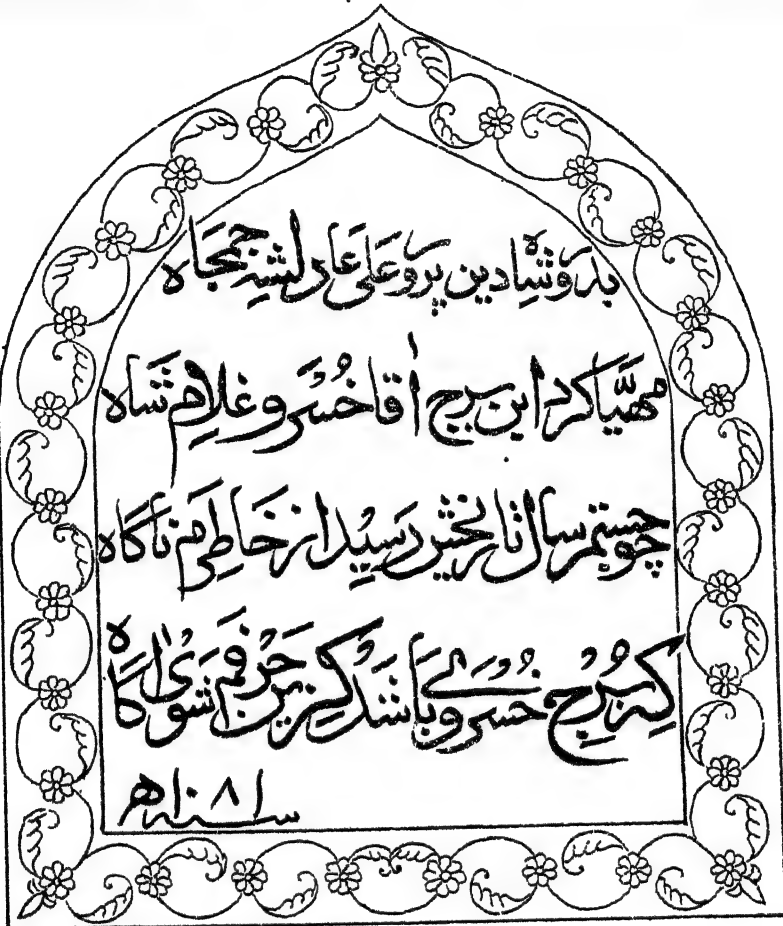 بدور شاه دین پرور علی عادل شه جمجاه
مهیّا کرد این برج آقا خسرو غلام شاه
چو جستم سال تاریخش رسید از خاطرم ناگاه
که برج خسروی باشد کزین حرفم شوی آگاه
سنه ۱۰۸۱ه